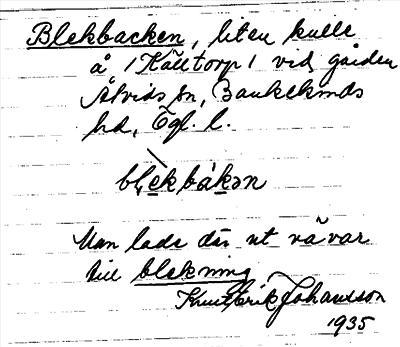 Blekbacken, liten kulle
å /Källtorp/ vid gården
Åtvids sn, Bankekinds
hd, Ögl. l.
blekbákən
Man lade där ut vävar
till blekning
Knut Erik Johansson
1935